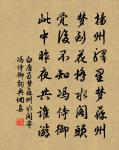 揚州驛里夢蘇州
夢到花橋水閣頭
覺後不知馮侍御
此中昨夜共誰遊
白居易夢蘇州水閣寄
馮侍御